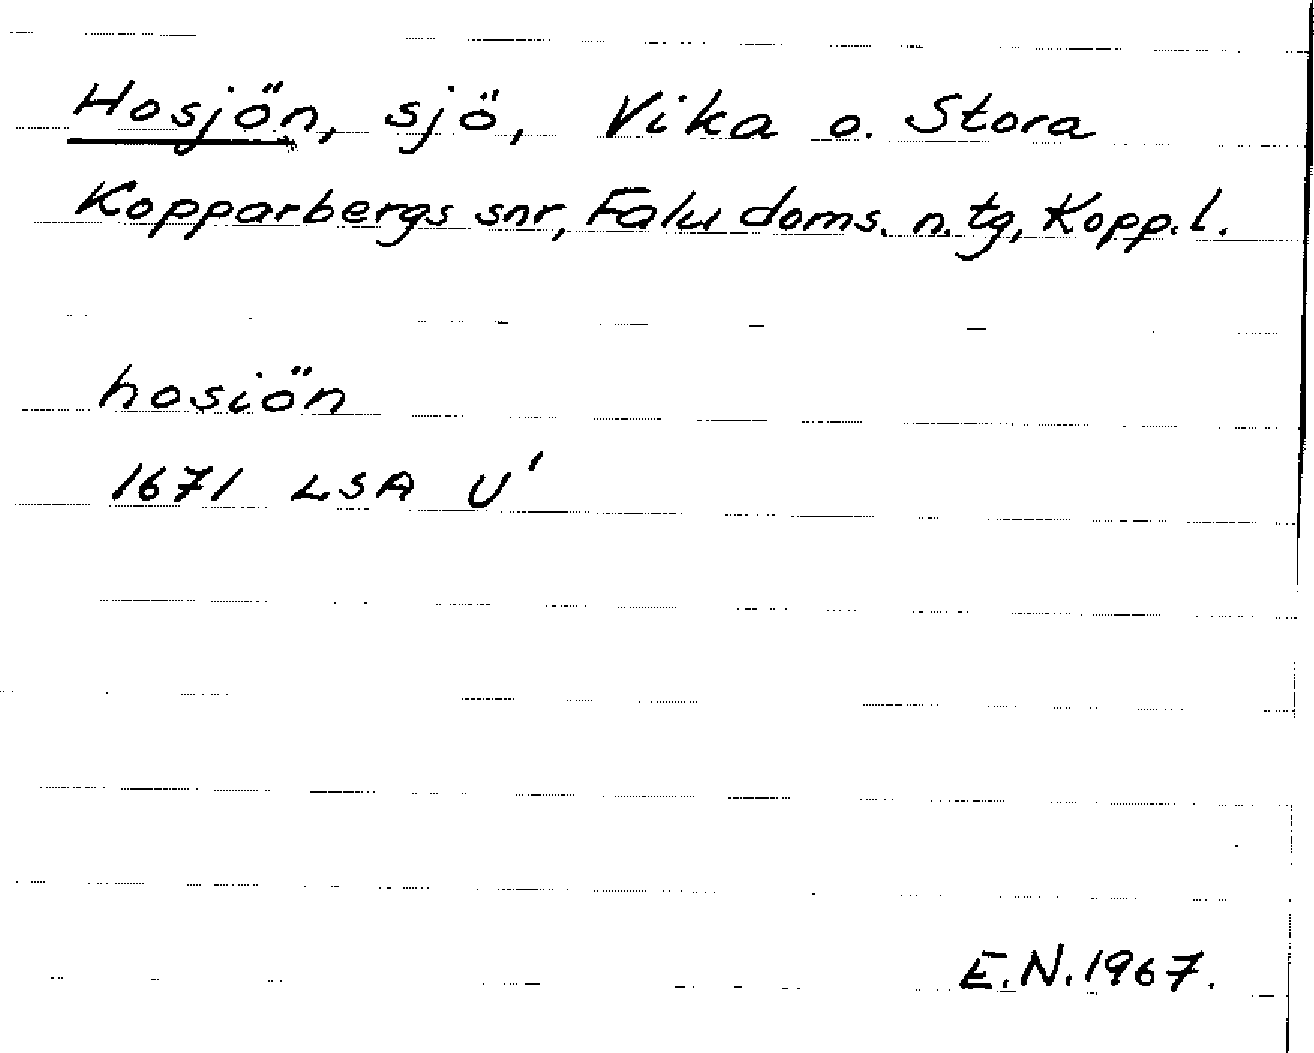 Hosjön, sjö, Vika o. Stora
Kopparbergs snr, Falu doms. n. tg, Kopp. l.
hosiön
1671 LSA U'
E.N. 1967.